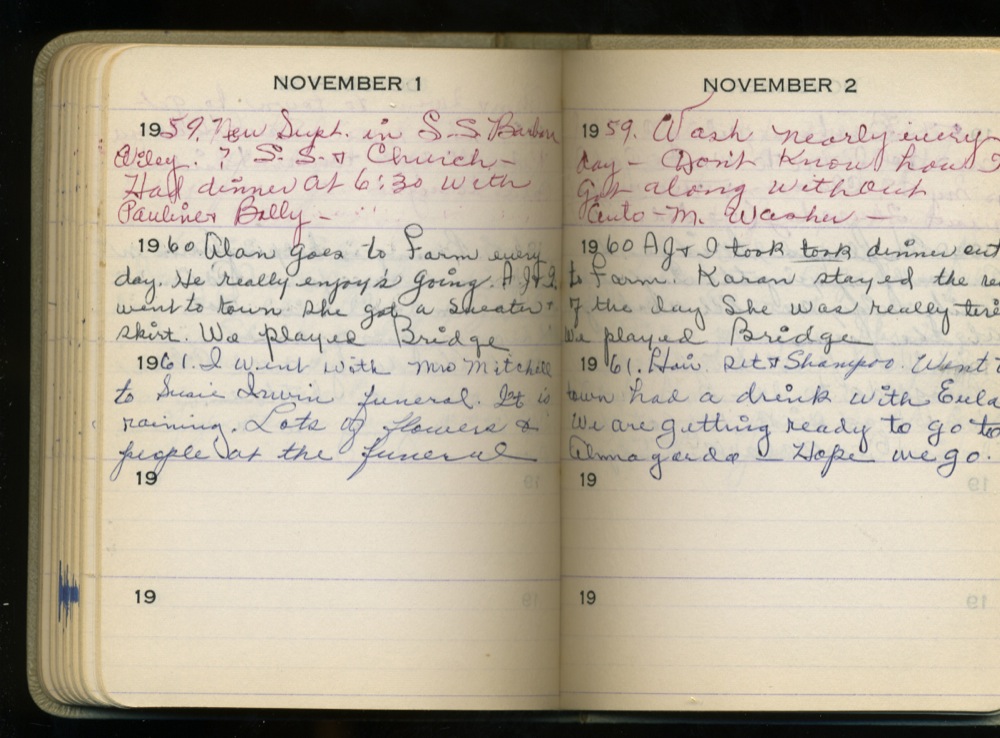 NOVEMBER 1
1959. New Supt. in S.S. Barbara
Wiley. ? S.S. & Church -
Had dinner at 6:30 with
Pauline & Billy -
1960 Alan goes to Farm every
day. He really enjoy's going. A.J. & I
went to town she got a sweater &
skirt. We played Bridge
1961. I went with Mrs Mitchell
to Susie Irwin funeral. It is
raining. Lots of flowers &
people at the funeral
19
19
NOVEMBER 2
1959. Wash nearly every
day - Don't know how I
got along without
Auto-M. Washer -
1960 AJ & I took took dinner out
to Farm. Karan stayed the re
of the day She was really tire
We played Bridge
1961. Hair set & Shampoo. Went
town had a drink with Eula
We are getting ready to go to
Almagorda - Hope we go.
19
19